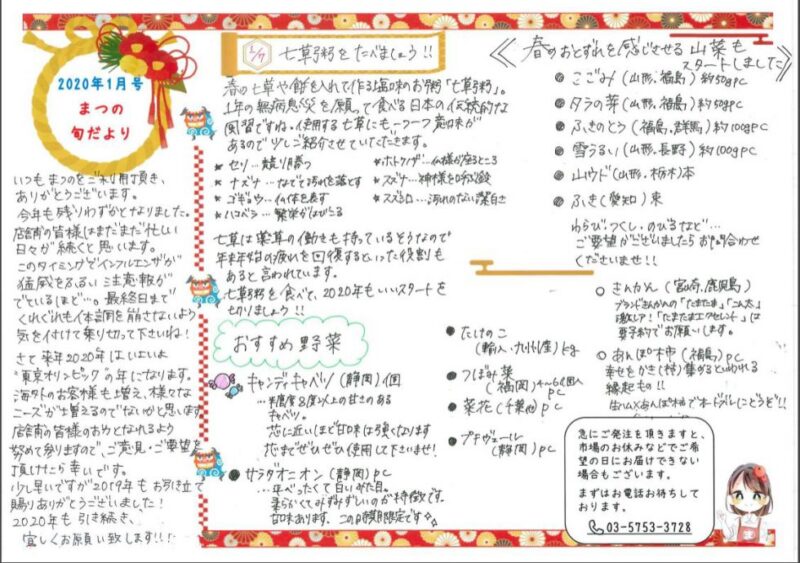 2020年1月号
まつの
旬だより
いつもまつのをご利用頂き、
ありがとうございます。
今年も残りわずかとなりました。
店舗の皆様はまだまだ忙しい
日々が続くと思います。
このタイミングでインフルエンザが
猛威をふるい注意報が
でているほど…。最終日まで
くれぐれも体調を崩さないよう
気を付けて乗り切って下さいね!
さて来年2020年はいよいよ
"東京オリンピック"の年になります。
海外のお客様も増え、様々な
ニーズが増えるのでないかと思います。
店舗の皆様のお力となれるよう
努めて参りますので、ご意見・ご要望を
頂けたら幸いです。
少し早いですが2019年もお引き立て
賜りありがとうございました!
2020年も引き続き、
宜しくお願い致します!!!
1/7 七草粥をたべましょう!!
春の七草や餅を入れて作る塩味のお粥「七草粥」。
1年の無病息災を願って食べる日本の伝統的な
風習ですね。使用する七草にも一つ一つ意味が
あるので少しご紹介させていただきます。
* セリ…競り勝つ
* ナズナ…なでて汚れを落とす
* ゴギョウ…仏体を表す
* ハコベラ…繁栄がはびこる
* ホトケノザ…仏様が座るところ
* スズナ…神様を呼ぶ鈴
* スズシロ…汚れのない潔白さ
七草は薬草の働きも持っているそうなので
年末年始の疲れを回復するといった役割も
あると言われています。
七草粥を食べて、2020年もいいスタートを
切りましょう!!
おすすめ野菜
キャンディキャベツ (静岡) 個
…糖度8度以上の甘さのある
キャベツ。
芯に近いほど甘味は強くなります
芯までぜひぜひ使用して下さいませ!
● サラダオニオン (静岡) pc
…平べったくて白いがた目。
柔らかくてみずみずしいのが特徴です。
甘味あります、この時期限定です
● たけのこ
(輸入・九州産) kg
● つぼみ菜
(福岡) 4~6個入
pc
● 菜花 (千葉他) pc
● プチヴェール
(静岡) pc
≪春のおとずれを感じさせる山菜も
スタートしました≫
● こごみ (山形、福島) 約50g pc
● タラの芽 (山形、福島) 約50g pc
● ふきのとう (福島、群馬) 約100g pc
● 雪うるい (山形、長野) 約100g pc
● 山ウド (山形、栃木) 本
● ふき (愛知) 束
わらび、つくし、のびるなど…
ご要望がございましたらお問合わせ
くださいませ!!
○ きんかん (宮崎、鹿児島)
ブランドきんかんの「たまたま」「こん太」
激レア!「たまたまエクセレント」は
要予約でお願いします。
○ あんぽ柿 (福島) pc
幸せをかき(柿)集めるといわれる
縁起もの!!
生ハム×あんぽ柿でオードブルにどうぞ!!
急にご発注を頂きますと、
市場のお休みなどでご希
望の日にお届けできない
場合もございます。
まずはお電話お待ちして
おります。
03-5753-3728